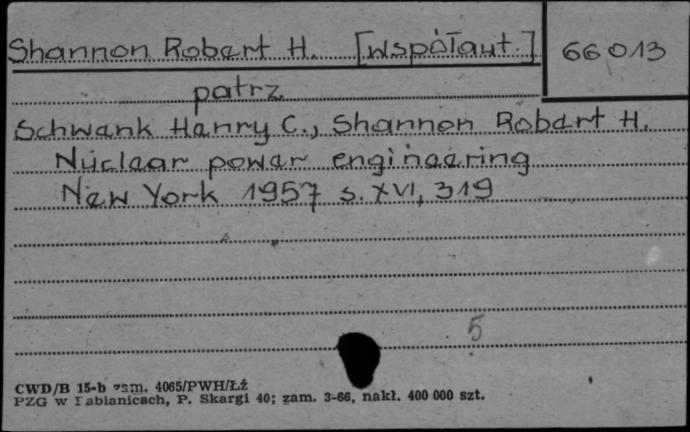 Shannon Robert H. [Współaut.]
66013
patrz
Schwank Henry C., Shannon Robert H.
Nuclear power engineering
New York 1957 s. XVI, 319
5
CWD/B 15-b zam. 4065/PWH/Łź
PZG w Pabianicach, P. Skargi 40; zam. 3-66, nakł. 400 000 szt.